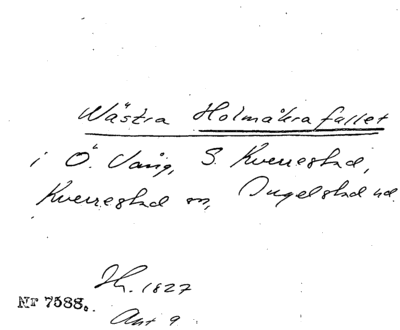 Wästra Holmåkrafallet
i Ö. Vang, S. Kverrestad,
Kverrestad sn, Ingelstad hd.
Sk. 1827
Akt 9
Nr 7588.